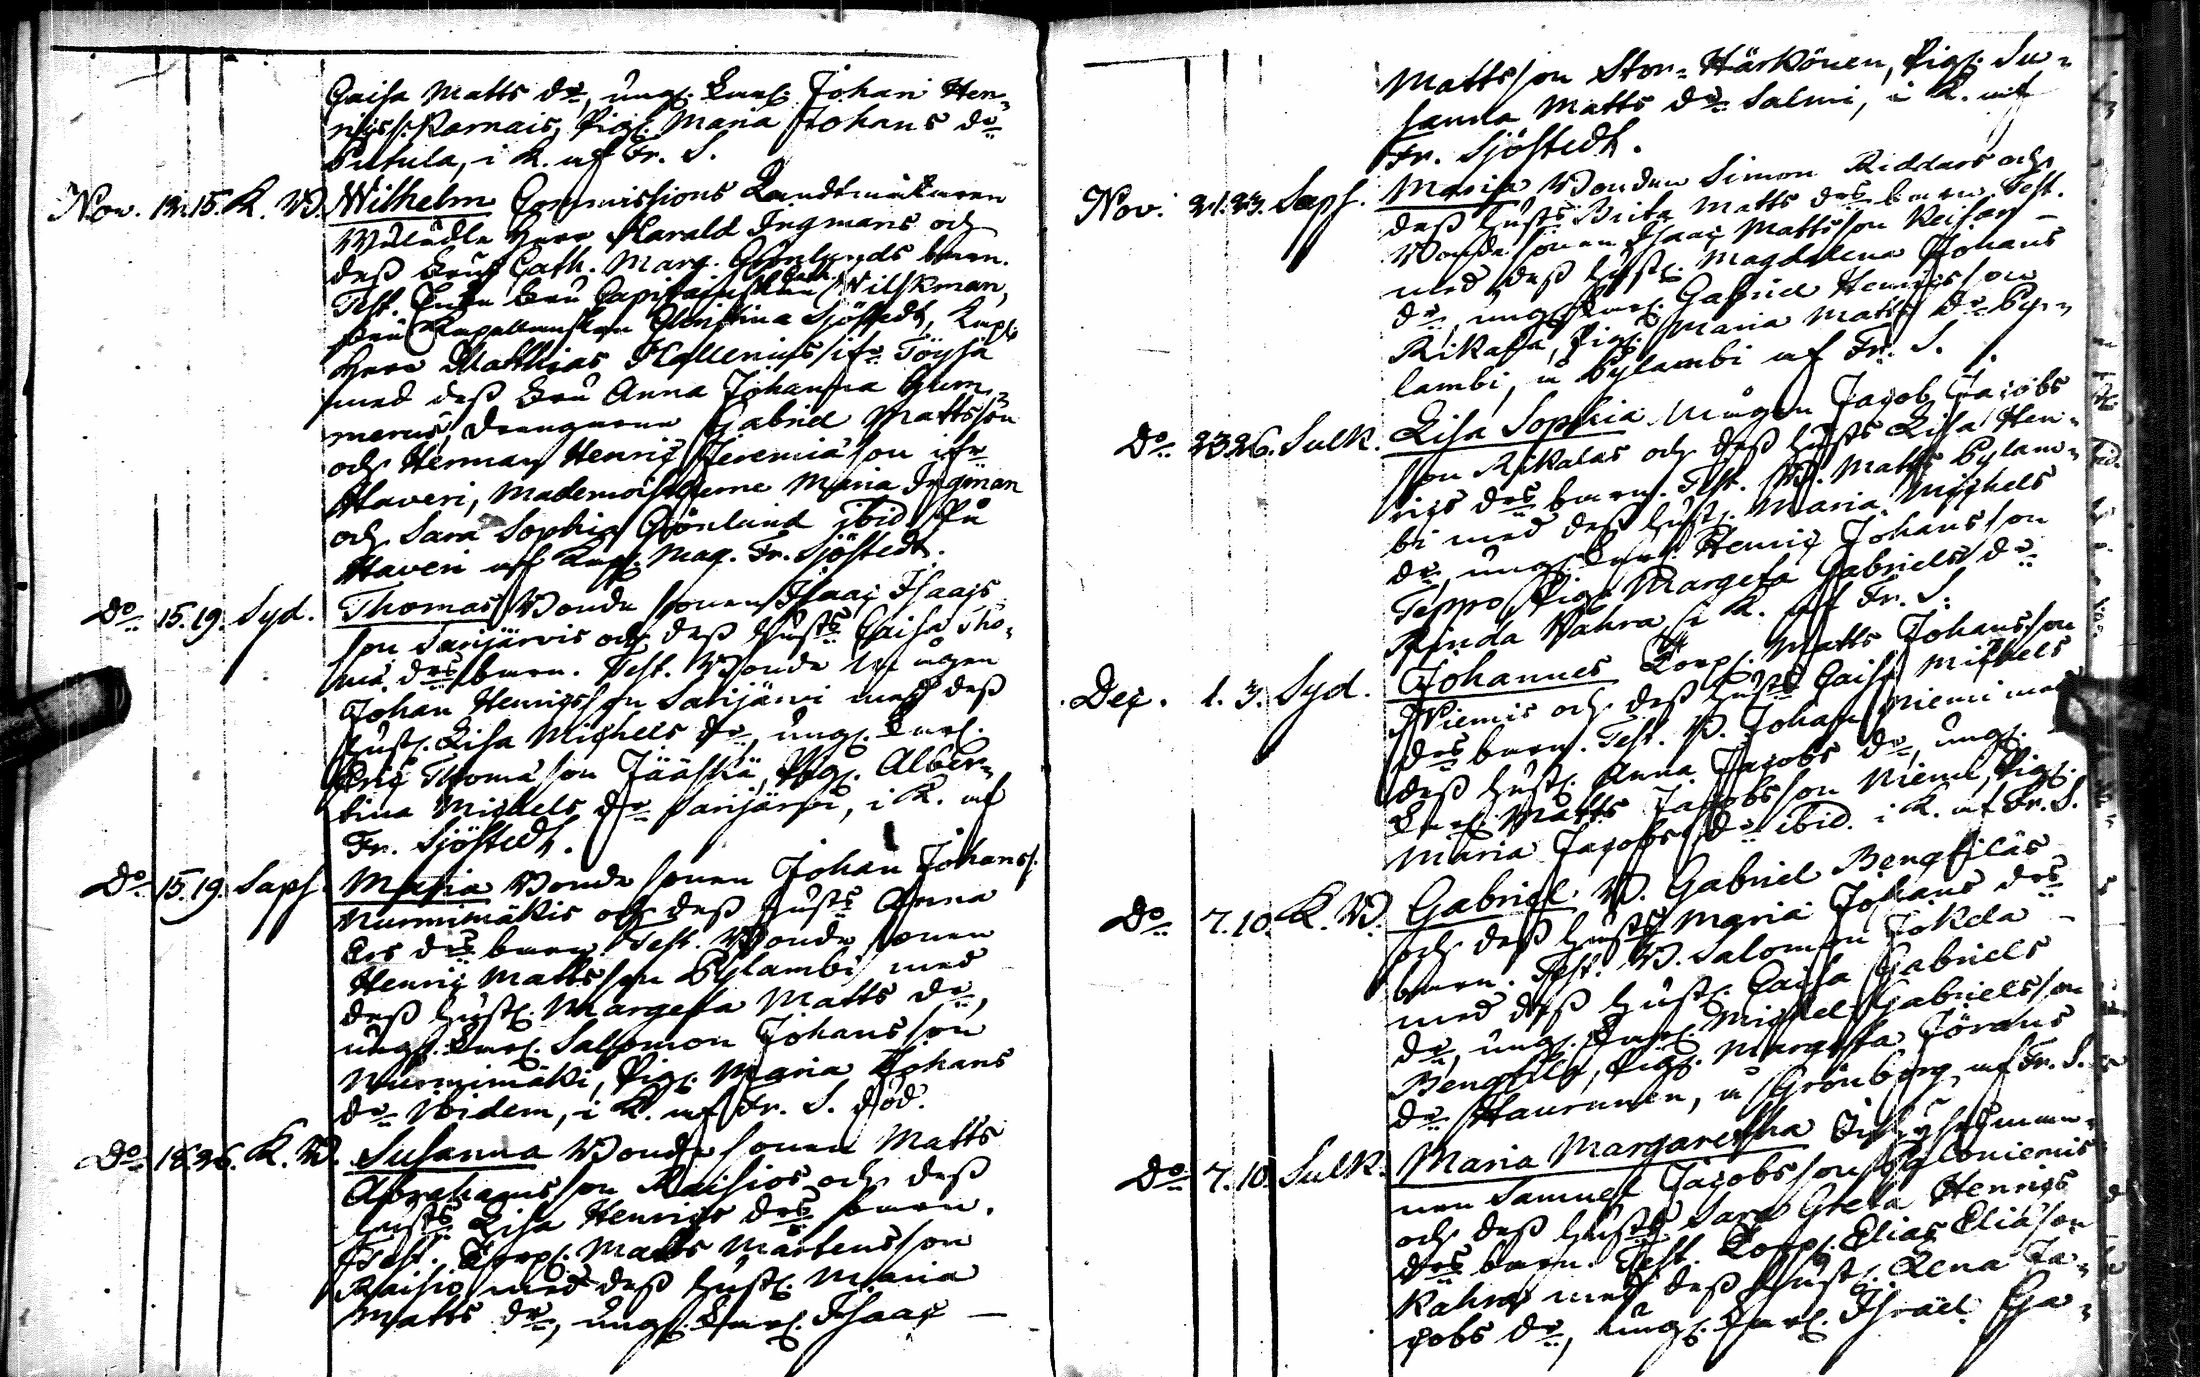 Caisa Matts dr, ung. Karl. Johan Hen-
richss. Karnais, Pig. Maria Johans dr
Putula, i K. af Fr. S.
Nov. 12. 15. K. B. Wilhelm Commissions Landtmätaren
Wäledle Herr Harald Ingmans och
dess Fru Cath. Marg. Grönlunds barn.
Test. Enke Fru Capitainskan Wilskman,
Fru Kapellanskan Christina Sjöstedt, Kapl.
Herr Matthias Hallenius ifr. Töysä
med dess Fru Anna Johanna Hum-
merus, Drengarne Gabriel Mattsson
och Herman Henric Jeremiä son ifr
Haveri, Mademoisellerne Maria Ingman
och Sara Sophia Grönlund ibid. På
Haveri af Kapl. Mag. Fr. Sjöstedt.
Do 15. 19. Syd. Thomas Bonde sonen Isaac Isaacs
son Sarijärvis och dess Hustrs Caisa Tho-
mä drs barn. Test. Bonde Mågen
Johan Henricsson Sarijärvi med dess
Hust. Lisa Michels dr, ung. Karl.
Eric Thomä son Jääskä, Pig. Alber-
tina Michels dr Sarijärvi, i K. af
Fr. Sjöstedt.
Do 15. 19. Saps. Maria Bonde sonen Johan Johanss.
Nurmimäkis och dess Hustrs Anna
Ers drs barn. Test. Bonde sonen
Henric Mattsson Pylambi med
dess Hust. Margeta Matts dr,
ung. Karl. Salomon Johansson
Nurmimäki, Pig. Maria Johans
dr ibidem, i K. af Fr. S. död.
Do 18. 26. K. B. Susanna Bonde sonen Matts
Abrahamsson Raisios och dess
Hustrs Lisa Henrics drs barn.
Test. Torp. Matts Mårtensson
Raisio med dess Hust. Maria
Matts dr, ung. Karl. Isaac —
Mattsson Stor-Härkönen, Pig. Su-
sanna Matts dr Salmi, i K. af
Fr. Sjöstedt.
Nov. 21. 23. Saps. Maria Bonden Simon Riddars och
dess Hustrs Brita Matts drs barn. Test.
Bonde sonen Isaac Mattsson Reisari —
med dess Hust. Magdalena Johans
dr, ung. Karl. Gabriel Henricsson
Rikala, Pig. Maria Matts dr Py-
lambi, i Pylambi af Fr. S.
Do 23. 26. Sulk. Lisa Sophia Mågen Jacob Jacobs
son Rikalas och dess Hustrs Lisa Hen-
rics drs barn. Test. B. Matts Pylam-
bi med dess Hust. Maria Michels
dr, ung. Karl. Henric Johansson
Teppo, Pig. Margeta Gabriels dr
Rinda Vahra, i K. af Fr. S.
Dec. 1. 3. Syd. Johannes Torp. Matts Johansson
Niemis och dess Hustrs Caisa Michels
drs barn. Test. B. Johan Niemi med
dess Hust. Anna Jacobs dr, ung.
Karl. Matts Jacobsson Niemi, Pig.
Maria Jacobs dr ibid. i K. af Fr. S.
Do 7. 10. K. B. Gabriel B. Gabriel Bengtiläs
och dess Hustrs Maria Johans drs
barn. Test. B. Salomon Jokela —
med dess Hust. Caisa Gabriels
dr, ung. Karl. Michel Gabrielsson
Bengtilä, Pig. Margeta Jörans
dr Haurunen, i Grönberg af Fr. S.
Do 7. 10. Sulk. Maria Margaretha
nen Samuel Jacobsson Palloniemis
och dess Hustrs Sara Greta Henrics
drs barn. Test. Torp. Elias Eliä son
Kähra med dess Hust. Lena Ja-
cobs dr, ung. Karl. Israel Ja-